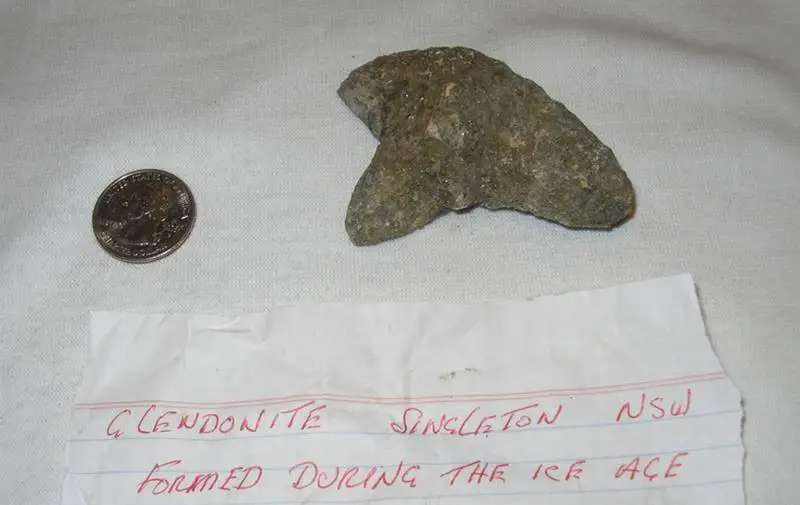 UNITED STATES OF AMERICA
GLENDONITE SINGLETON NSW
FORMED DURING THE ICE AGE